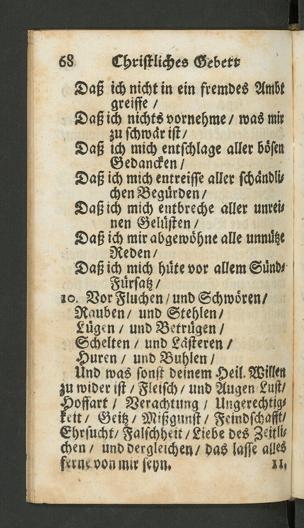 68 Christliches Gebett
Daß ich nicht in ein fremdes Ambt
greiffe /
Daß ich nichts vornehme / was mir
zu schwär ist /
Daß ich mich entschlage aller bösen
Gedancken /
Daß ich mich entreisse aller schändli-
chen Begürden /
Daß ich mich entbreche aller unrei-
nen Gelüsten /
Daß ich mir abgewöhne alle unnütze
Reden /
Daß ich mich hüte vor allem Sünd-
Fürsatz /
10. Vor Fluchen / und Schwören /
Rauben / und Stehlen /
Lügen / und Betrügen /
Schelten / und Lästeren /
Huren / und Buhlen /
Und was sonst deinem Heil. Willen
zu wider ist / Fleisch / und Augen Lust /
Hoffart / Verachtung / Ungerechtig-
keit / Geitz / Mißgunst / Feindschafft /
Ehrsucht / Falschheit / Liebe des Zeitli-
chen / und dergleichen / das lasse alles
ferne von mir seyn. 11.